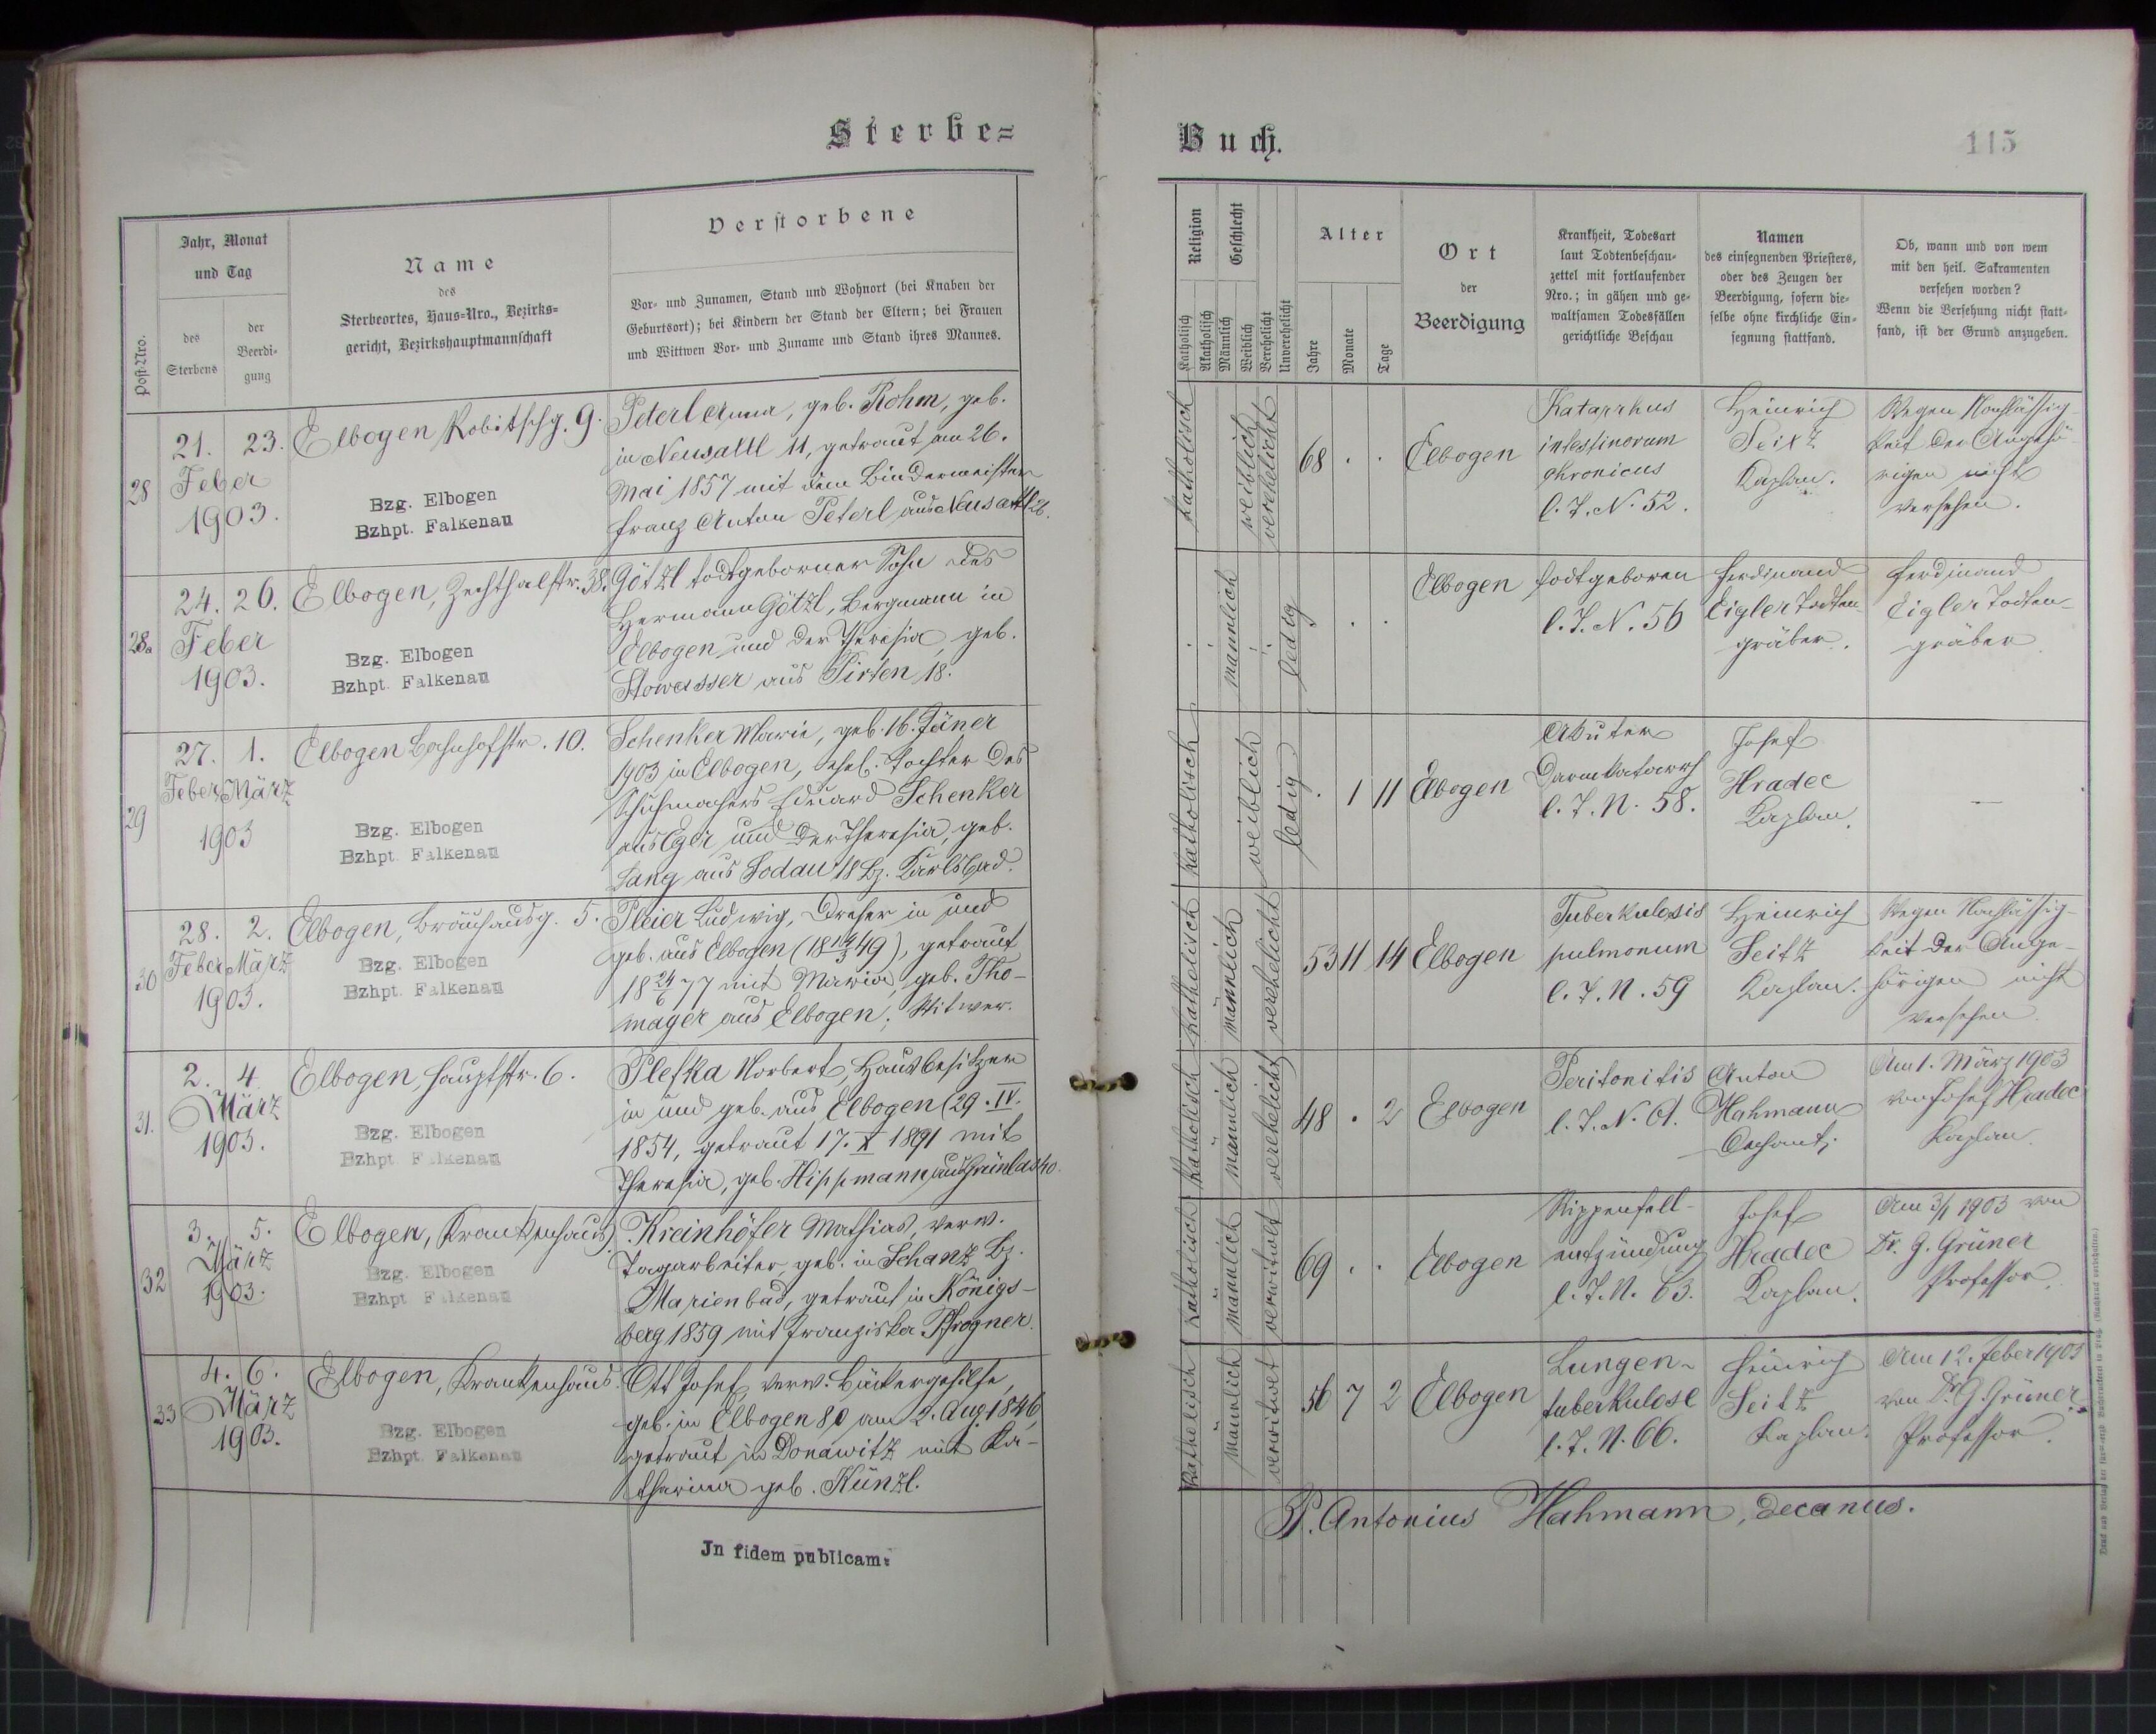 Sterbe=
Buch.
115
Post-Nro.
Jahr, Monat
und Tag
des
Sterbens
der
Beerdi-
gung
Name
des
Sterbeortes, Haus=Nro., Bezirks=
gericht, Bezirkshauptmannschaft
Verstorbene
Vor= und Zunamen, Stand und Wohnort (bei Knaben der
Geburtsort); bei Kindern der Stand der Eltern; bei Frauen
und Wittwen Vor= und Zuname und Stand ihres Mannes.
Religion
Katholisch
Akatholisch
Geschlecht
Männlich
Weiblich
Verehelicht
Unverehelicht
Alter
Jahre
Monate
Tage
Ort
der
Beerdigung
Krankheit, Todesart
laut Todtenbeschau=
zettel mit fortlaufender
Nro.; in gähen und ge=
waltsamen Todesfällen
gerichtliche Beschau
Namen
des einsegnenden Priesters,
oder des Zeugen der
Beerdigung, sofern die=
selbe ohne kirchliche Ein=
segnung stattfand.
Ob, wann und von wem
mit den heil. Sakramenten
versehen worden?
Wenn die Versehung nicht statt=
fand, ist der Grund anzugeben.
28
21. 23.
Feber
1903.
Elbogen Robitschg. 9.
Bzg. Elbogen
Bzhpt. Falkenau
Peterl Anna, geb. Rohm, geb.
in Neusattl 11, getraut am 26.
Mai 1857 mit dem Bindermeister
Franz Anton Peterl aus Neusattl 26.
katholisch
weiblich
verehelicht
68 . .
Elbogen
Katarrhus
intestinorum
chronicus
l. T. N. 52.
Heinrich
Seitz
Kaplan.
Wegen Nachlässig-
keit der Angehö-
rigen nicht
versehen.
28a
24. 26.
Feber
1903.
Elbogen, Zechthalstr. 38.
Bzg. Elbogen
Bzhpt. Falkenau
Götzl todtgeborner Sohn des
Hermann Götzl, Bergmann in
Elbogen und der Theresia, geb.
Stowasser aus Pirten 18.
männlich
ledig
. .
Elbogen
todtgeboren
l. T. N. 56
Ferdinand
Eigler Todten-
gräber.
Ferdinand
Eigler Todten-
gräber
29
27. 1.
Feber März
1903
Elbogen Bahnhofstr. 10.
Bzg. Elbogen
Bzhpt. Falkenau
Schenker Marie, geb. 16. Jäner
1903 in Elbogen, ehel. Tochter des
Schuhmachers Eduard Schenker
aus Eger und der Theresia, geb.
Lang aus Sodau 18 Bz. Karlsbad.
katholisch
weiblich
ledig
. 1 11
Elbogen
Akuter
Darmkatarrh
l. T. N. 58.
Josef
Hradec
Kaplan.
—
30
28. 2.
Feber März
1903.
Elbogen, Bräuhausg. 5.
Bzg. Elbogen
Bzhpt. Falkenau
Pleier Ludwig, Dreher in und
geb. aus Elbogen (18 14/3 49), getraut
18 24/6 77 mit Maria, geb. Tho-
mayer aus Elbogen; Witwer.
katholisch
männlich
verehelicht
53 11 14
Elbogen
Tuberkulosis
pulmonum
l. T. N. 59
Heinrich
Seitz
Kaplan.
Wegen Nachlässig-
keit der Ange-
hörigen nicht
versehen.
31.
2. 4
März
1903.
Elbogen, Hauptstr. 6.
Bzg. Elbogen
Bzhpt. Falkenau
Plefka Norbert, Hausbesitzer
in und geb. aus Elbogen (29. IV.
1854, getraut 17. X 1891 mit
Theresia, geb. Hippmann aus Grünlas 40.
katholisch
männlich
verehelicht
48 . 2
Elbogen
Peritonitis
l. T. N. 61.
Anton
Hahmann
Dechant.
Am 1. März 1903
von Josef Hradec
Kaplan.
32
3. 5.
März
1903.
Elbogen, Krankenhaus.
Bzg. Elbogen
Bzhpt. Falkenau
Kreinhöfer Mathias, verw.
Tagarbeiter, geb. in Schanz Bz.
Marienbad, getraut in Königs-
berg 1859 mit Franziska Pfrogner.
katholisch
männlich
verwitwet
69 . .
Elbogen
Rippenfell-
entzündung
l. T. N. 63.
Josef
Hradec
Kaplan.
Am 3/1 1903 von
Dr. G. Grüner
Professor.
33
4. 6.
März
1903.
Elbogen, Krankenhaus.
Bzg. Elbogen
Bzhpt. Falkenau
Ott Josef, verw. Bäckergehilfe,
geb. in Elbogen 80 am 2. Aug. 1846,
getraut in Donawitz mit Ka-
tharina geb. Künzl.
katholisch
männlich
verwitwet
56 7 2
Elbogen
Lungen-
tuberkulose
l. T. N. 66.
Heinrich
Seitz
Kaplan.
Am 12. Feber 1903
von Dr. G. Grüner
Professor.
In fidem publicam:
P. Antonius Hahmann, decanus.